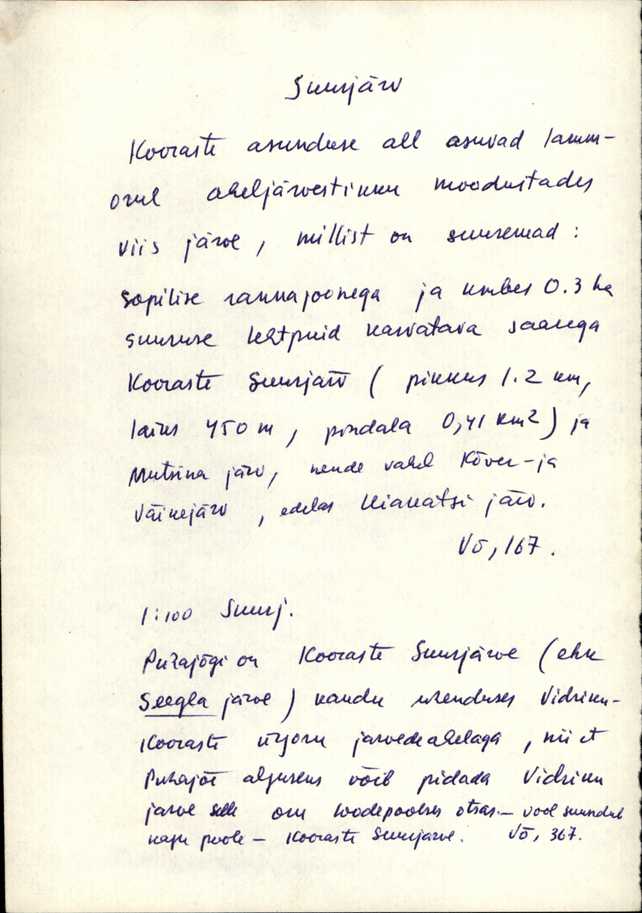 Suurjärv
Kooraste asunduse all asuvad lamm-
orul aheljärvestikku moodustades
viis järve, millist on suuremad:
sopilise rannajoonega ja umbes 0.3 ha
suuruse lehtpuid kasvatava saarega
Kooraste Suurjärv ( pikkus 1.2 km,
laius 450 m, pindala 0,41 km2) ja
Mutsina järv, nende vahel Kõver- ja
Väikejärv, edelas Uianatsi järv.
Võ, 167.
1:100 Suurj.
Puhajõgi on Kooraste Suurjärve (ehk
Seegla järve) kaudu ühenduses Vidriku-
Kooraste ürgoru järvedeahelaga, nii et
Puhajõe alguseks võib pidada Vidriku
järve selle oru loodepoolses otsas. – vool suundub
kagu poole – Kooraste Suurjärve. Võ, 367.